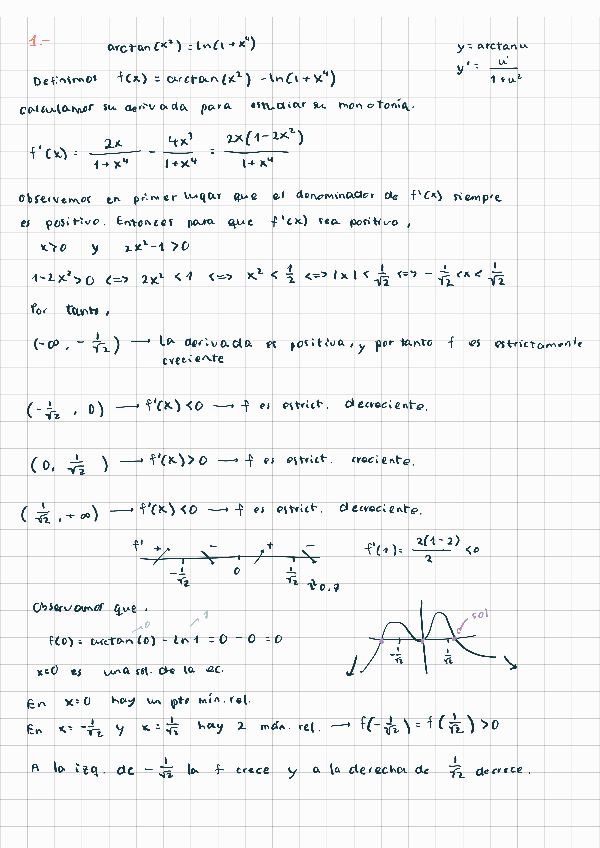 1.-
arctan(x²) = ln(1 + x⁴)
y = arctan u
y' = u' / (1 + u²)
Definimos f(x) = arctan(x²) - ln(1 + x⁴)
calculamos su derivada para estudiar su monotonía.
f'(x) = 2x / (1 + x⁴) - 4x³ / (1 + x⁴) = 2x(1 - 2x²) / (1 + x⁴)
observemos en primer lugar que el denominador de f'(x) siempre
es positivo. Entonces para que f'(x) sea positivo,
x>0 y 2x²-1 >0
1-2x²>0 <=> 2x² < 1 <=> x² < 1/2 <=> |x| < 1/√2 <=> -1/√2 < x < 1/√2
Por tanto,
(-∞, -1/√2) → La derivada es positiva, y por tanto f es estrictamente
creciente
(-1/√2, 0) → f'(x) <0 → f es estrict. decreciente.
(0, 1/√2) → f'(x) >0 → f es estrict. creciente.
(1/√2, +∞) → f'(x) <0 → f es estrict. decreciente.
f' + - + -
-1/√2 0 1/√2 ≈0.7
f'(1) = 2(1-2) / 2 <0
Observamos que,
0 1
f(0) = arctan(0) - ln 1 = 0 - 0 = 0
x=0 es una sol. de la ec.
sol
-1/√2 1/√2
En x=0 hay un pto mín. rel.
En x = -1/√2 y x = 1/√2 hay 2 máx. rel. → f(-1/√2) = f(1/√2) >0
A la izq. de -1/√2 la f crece y a la derecha de 1/√2 decrece.